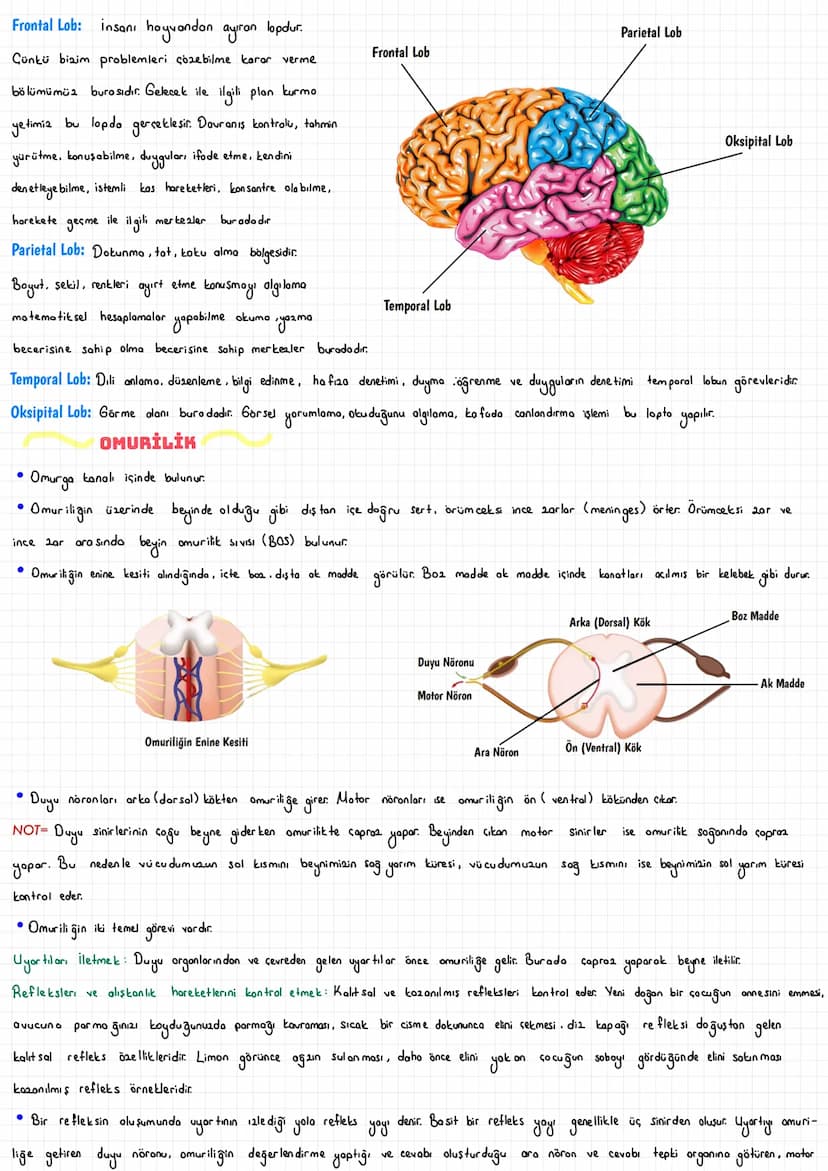 Frontal Lob: İnsanı hayvandan ayıran lopdur.
Çünkü bizim problemleri çözebilme karar verme
bölümümüz burasıdır. Gelecek ile ilgili plan kurma
yetimiz bu lopda gerçekleşir. Davranış kontrolu, tahmin
yürütme, konuşabilme, duyguları ifade etme, kendini
denetleyebilme, istemli kas hareketleri, konsantre olabilme,
harekete geçme ile ilgili merkezler buradadır
Frontal Lob
Parietal Lob
Oksipital Lob
Temporal Lob
Parietal Lob: Dokunma, tat, koku alma bölgesidir.
Boyut, şekil, renkleri ayırt etme konuşmayı algılama
matematiksel hesaplamalar yapabilme okuma, yazma
becerisine sahip olma becerisine sahip merkezler buradadır.
Temporal Lob: Dili anlama, düzenleme, bilgi edinme, hafıza denetimi, duyma öğrenme ve duyguların denetimi temporal lobun görevleridir.
Oksipital Lob: Görme alanı buradadır. Görsel yorumlama, okuduğunu algılama, kafada canlandırma işlemi bu lopta yapılır.
OMURİLİK
• Omurga kanalı içinde bulunur.
• Omuriliğin üzerinde beyinde olduğu gibi dıştan içe doğru sert, örümceksi ince zarlar (meninges) örter. Örümceksi zar ve
ince zar arasında beyin omurilik sıvısı (BOS) bulunur.
• Omuriliğin enine kesiti alındığında, içte boz, dışta ak madde görülür. Boz madde ak madde içinde kanatları açılmış bir kelebek gibi durur.
Omuriliğin Enine Kesiti
Arka (Dorsal) Kök
Boz Madde
Duyu Nöronu
Motor Nöron
Ak Madde
Ara Nöron
Ön (Ventral) Kök
• Duyu nöronları arka (dorsal) kökten omuriliğe girer. Motor nöronları ise omuriliğin ön (ventral) kökünden çıkar.
NOT= Duyu sinirlerinin çoğu beyne giderken omurilikte çapraz yapar. Beyinden çıkan motor sinirler ise omurilik soğanında çapraz
yapar. Bu nedenle vücudumuzun sol kısmını beynimizin sağ yarım küresi, vücudumuzun sağ kısmını ise beynimizin sol yarım küresi
kontrol eder.
• Omuriliğin iki temel görevi vardır.
Uyartıları İletmek: Duyu organlarından ve çevreden gelen uyartılar önce omuriliğe gelir. Burada çapraz yaparak beyne iletilir.
Refleksleri ve alışkanlık hareketlerini kontrol etmek: Kalıtsal ve kazanılmış refleksleri kontrol eder. Yeni doğan bir çocuğun annesini emmesi,
avucuna parmağınızı koyduğunuzda parmağı kavraması, sıcak bir cisme dokununca elini çekmesi, diz kapağı refleksi doğuştan gelen
kalıtsal refleks özellikleridir. Limon görünce ağzın sulanması, daha önce elini yakan çocuğun sobayı gördüğünde elini sakınması
kazanılmış refleks örnekleridir.
• Bir refleksin oluşumunda uyartının izlediği yola refleks yayı denir. Basit bir refleks yayı genellikle üç sinirden oluşur. Uyartıyı omuri-
liğe getiren duyu nöronu, omuriliğin değerlendirme yaptığı ve cevabı oluşturduğu ara nöron ve cevabı tepki organına götüren, motor